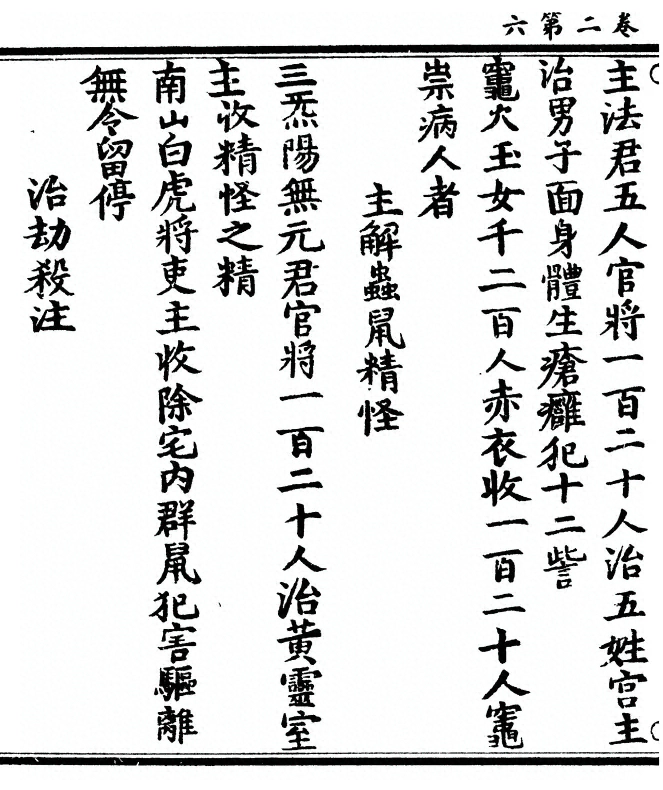 卷二第六
主法君五人官將一百二十人治五姓宫主
治男子面身體生瘡癰犯十二訾
竈火玉女千二百人赤衣收一百二十人竈
祟病人者
主解蟲鼠精怪
三炁陽無元君官將一百二十人治黄靈室
主收精怪之精
南山白虎將吏主收除宅内群鼠犯害驅離
無令留停
治劫殺注